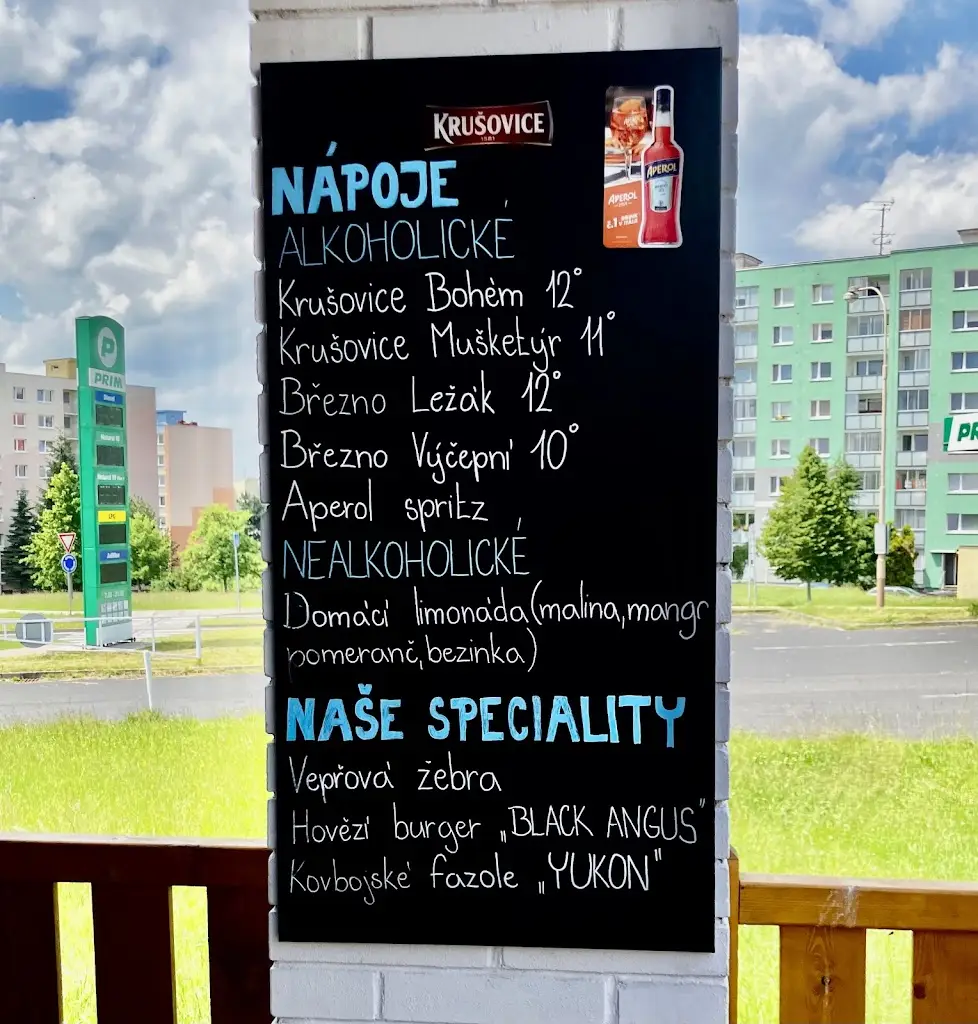 KRUŠOVICE
1581
APEROL
APEROL
Č.1 DRINK
V ITÁLII
NÁPOJE
ALKOHOLICKÉ
Krušovice Bohém 12°
Krušovice Mušketýr 11°
Březno Ležák 12°
Březno Výčepní 10°
Aperol spritz
NEALKOHOLICKÉ
Domácí limonáda (malina, mango
pomeranč, bezinka)
NAŠE SPECIALITY
Vepřová žebra
Hovězí burger „BLACK ANGUS"
Kovbojské fazole „YUKON"
P
PRIM
Diesel
Natural 95
LPG
AdBlue
PR